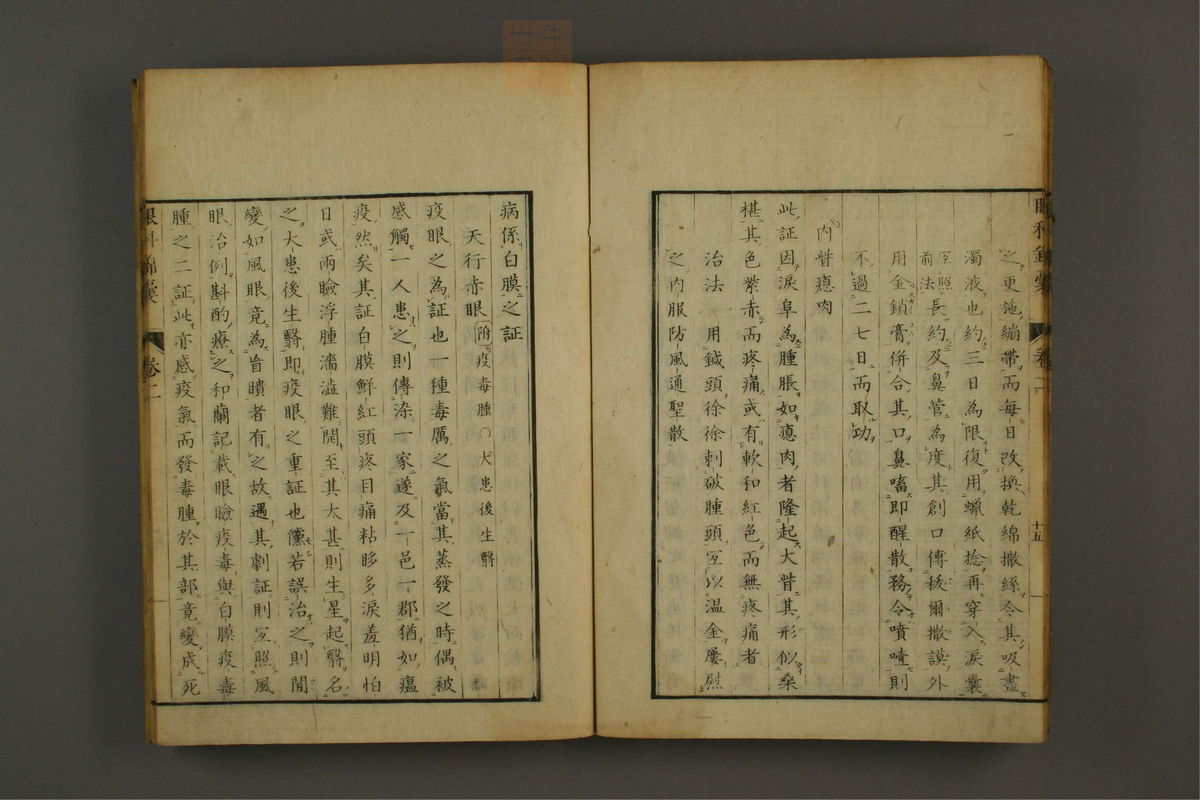 眼科錦囊 卷二 十五
之更施繃帶而每日改換乾綿撒絲令其吸盡
濁液也約三日為限復用蠟紙捻再穿入淚囊
宜照前法長約及鼻管為度其創口傳拔爾撒謨外
用金鎖膏併合其口鼻嗜即醒散務令噴嚏則
不過二七日而取功
內眥瘜肉
此証因淚阜為腫脹如瘜肉者隆起大眥其形似桑
椹其色紫赤而疼痛或有軟和紅色而無疼痛者
治法 用鍼頭徐徐刺破腫頭宜以温金屢慰
之內服防風通聖散
病係白膜之証
天行赤眼 附疫毒腫○大患後生瞖
疫眼之為証也一種毒厲之氣當其蒸發之時偶被
感觸一人患之則傳染一家遂及一邑一郡猶如瘟
疫然矣其証白膜鮮紅頭疼目痛粘眵多淚羞明怕
日或兩瞼浮腫濇澁難開至其大甚則生星起瞖名
之大患後生瞖即疫眼之重証也儻若誤治之則間
變如風眼竟為盲瞶者有之故遇其劇証則宜照風
眼治例斟酌療之和蘭記載眼瞼疫毒與白膜疫毒
腫之二証此亦感疫氣而發毒腫於其部竟變成死
眼科錦囊 卷二